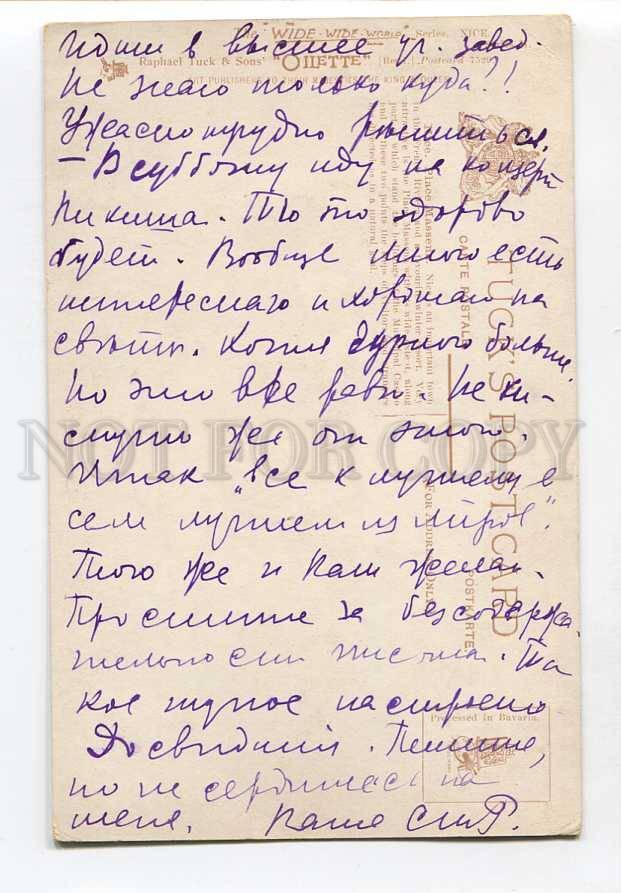 The "WIDE-WIDE-WORLD" Series, NICE.
Raphael Tuck & Sons' "OILETTE" [Regd.] Postcard 752
ART PUBLISHERS TO THEIR MAJESTIES THE KING
TUCK'S POST CARD
CARTE POSTALE
POSTKARTE
FOR ADDRESS ONLY
Place Massena
Processed in Bavaria.
в высшее уч. завед.
Не знаю только куда?!!
Ужасно трудно решиться.
— В субботу иду на концерт
Никиша. То то здорово
будет. Вообще много есть
интереснаго и хорошаго на
свѣтѣ. Хотя дурного больше.
Но это все равно. Не ки-
снуть же от этого.
Итак „все к лучшему в
сем лучшем из мiров".
Того же и Вам желаю.
Простите за безсодержа-
тельность письма. Та
кое глупое настроенiе
До свиданiя. Пишите,
но не сердитесь на
меня. Ваша
NOT FOR COPY